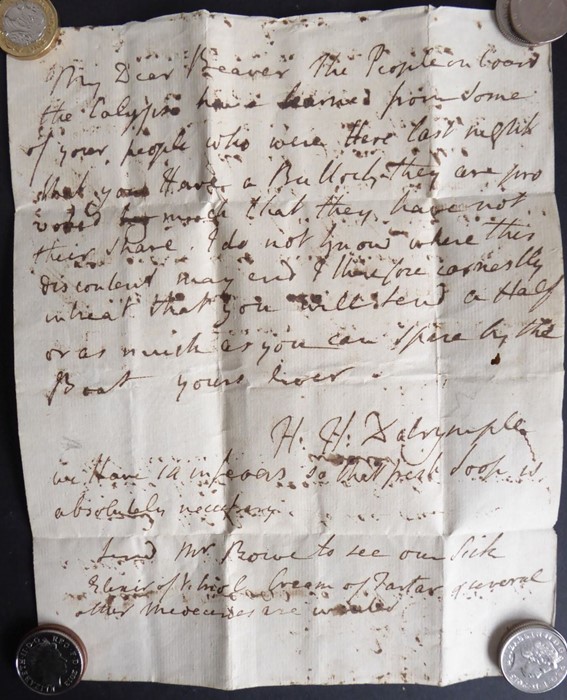 My Dear Beaver The People on board
the Calypso have learned from some
of your people who were Here last night
that you Have a Bullock they are pro
voked so much that they have not
their share. I do not know where this
discontent may end I therefore earnestly
intreat that you will send a Half
or as much as you can spare by the
Boat yours ever
H. H. Dalrymple
we Have 14 in fevers so that fresh soop is
absolutely necessary
Send Mr Rowe to see our Sick
Elixir of Vitriol Cream of Tartar & several
other Medecines are wanted